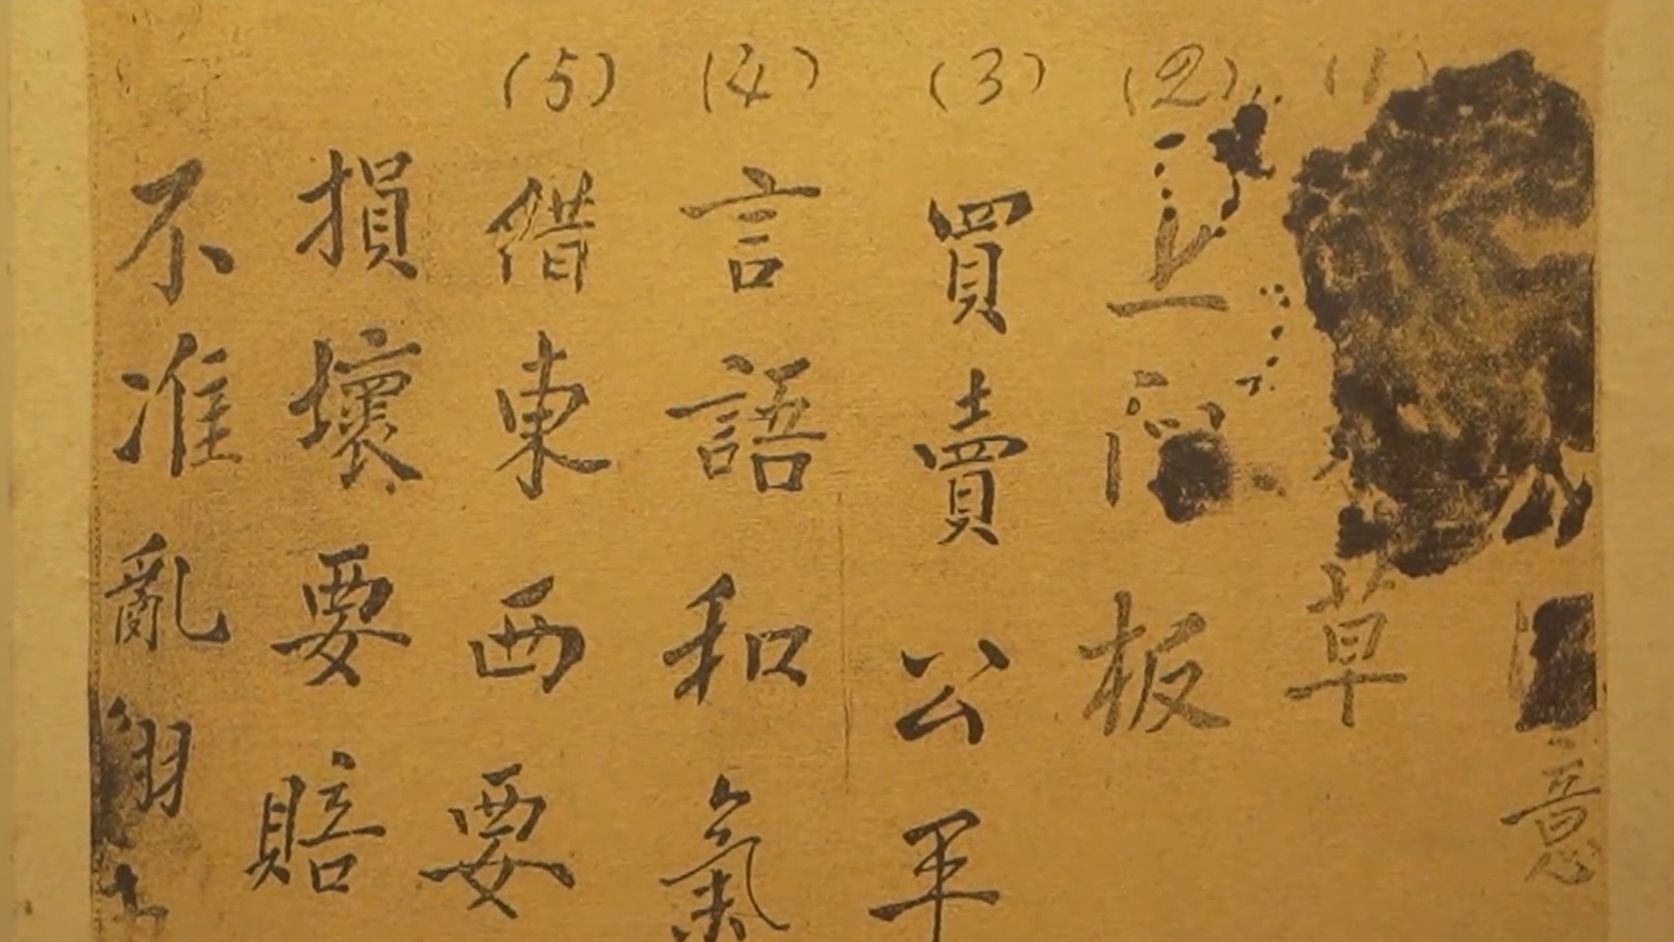 意
(1) 草
(2) 板
(3) 買賣公平
(4) 言語和氣
(5) 借東西要
損壞要賠
不准亂